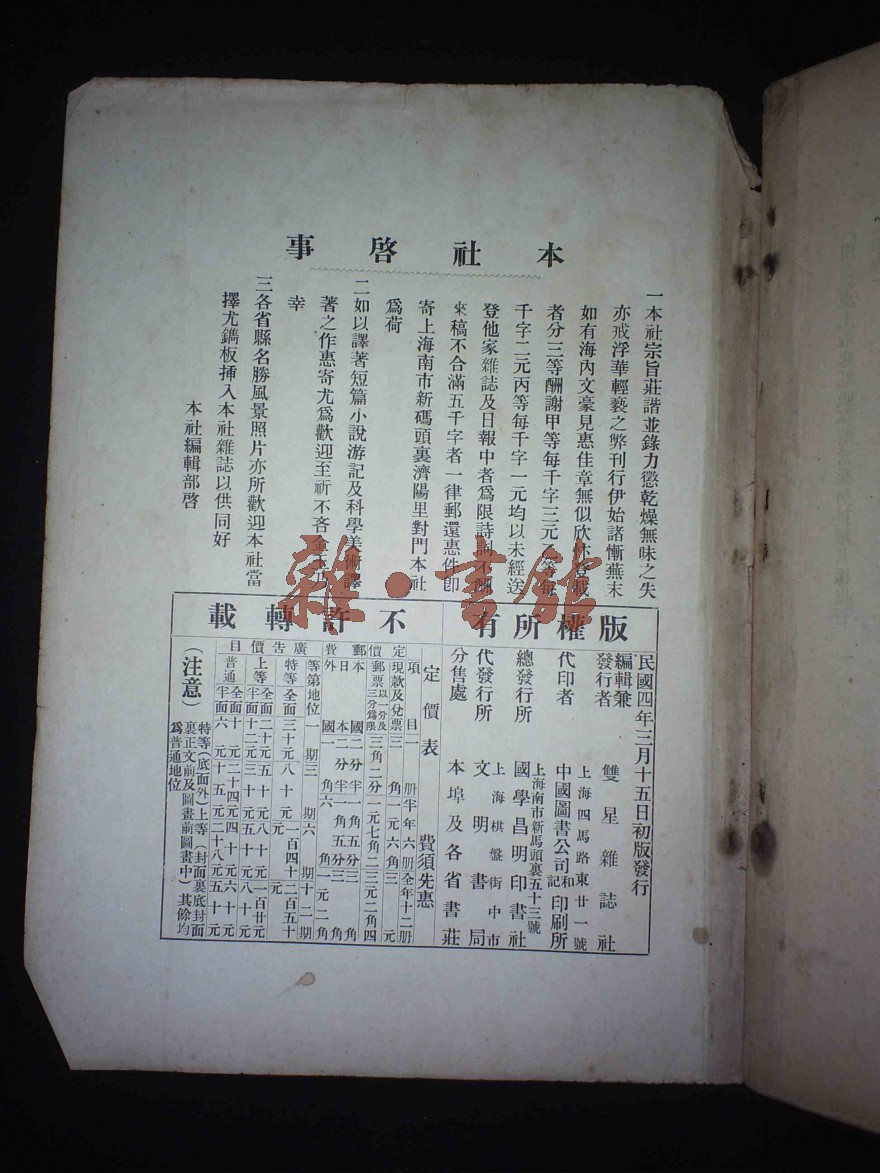 本社啓事
一本社宗旨莊諧並錄力懲乾燥無味之失
亦戒浮華輕褻之弊刊行伊始諸慚蕪末
如有海内文豪見惠佳章無似欣忭登載
者分三等酬謝甲等每千字三元乙等每
千字二元丙等每千字一元均以未經送
登他家雜誌及日報中者爲限詩詞不酬
來稿不合滿五千字者一律郵還惠件卽
寄上海南市新碼頭裏濟陽里對門本社
爲荷
二如以譯著短篇小說游記及科學美術譯
著之作惠寄尤爲歡迎至祈不吝金玉乃
幸
三各省縣名勝風景照片亦所歡迎本社當
擇尤鐫板挿入本社雜誌以供同好
本社編輯部啓
雜·書館
版權所有
不許轉載
民國四年三月十五日初版發行
編輯兼發行者 雙星雜誌社
上海四馬路東廿一號
代印者 中國圖書公司和記印刷所
上海南市新馬頭裏五十三號
總發行所 國學昌明印書社
上海棋盤街中市
代發行所 文明書局
分售處 本埠及各省書莊
定價表 費須先惠
項目 一册 半年六册 全年十二册
定價 現款及兌票 三角 一元六角 三元
郵票以一分及三分爲限 三角二分 一元七角二 三元二角四
郵費 本國 二分半 一角五分 三角
日本 二分半 一角五分 三角
外國 一角 六角 一元二角
廣告價目
等第 地位 一期 三期 六期 十二期
特等 全面 三十元 八十元 一百四十元 二百五十元
上等 全面 二十元 五十元 八十元 一百廿元
半面 十二元 三十元 五十元 八十元
普通 全面 十元 二十四元 四十元 六十元
半面 六元 十五元 二十八元 五十元
（注意）特等（底面外）上等（封面裏底封面
裏正文前及圖畫前圖畫中）其餘均
爲普通地位